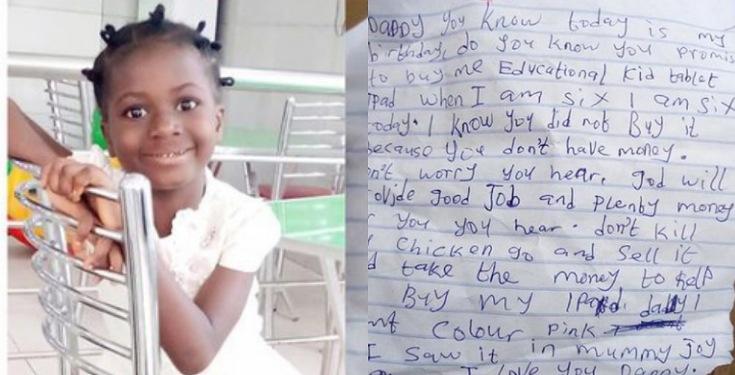 DADDY you know today is my
birthday, do you know you promis
to buy me Educational kid tablet
Ipad when I am six I am six
oday. I know you did not Buy it
because you don't have money.
n't worry you hear, god will
ovide good Job and plenty money
r you you hear. don't kill
chicken go and sell it
d take the money to help
Buy my IPad. dady I
nt Colour pink
I saw it in mummy Joy
I love you Daddy.